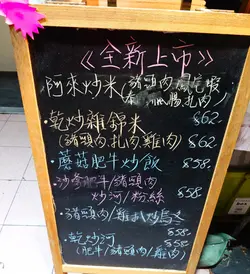 《全新上市》
阿來炒米(豬頭肉
腸扎肉)
$62
·乾炒雜錦米
(豬頭肉,扎肉,雞肉) $62
·蘑菇肥牛炒飯 $58
沙爹肥牛/豬頭肉
炒河/粉絲 $58
·豬頭肉/雞扒炒烏冬
$58
·乾炒河 $58
(肥牛/豬頭肉/雞肉)